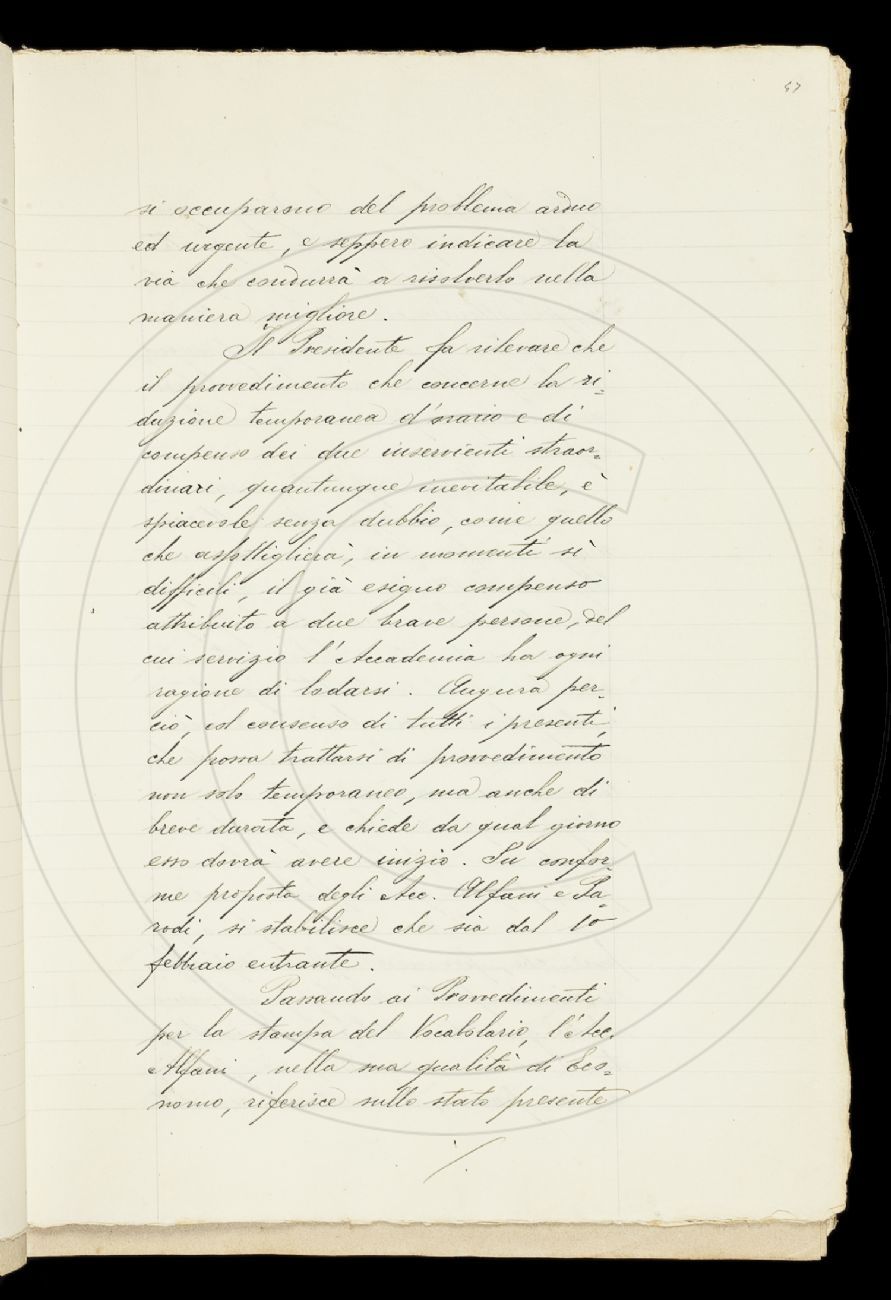 67
si occuparono del problema arduo
ed urgente, e seppero indicare la
via che condurrà a risolverlo nella
maniera migliore.
Il Presidente fa rilevare che
il provvedimento che concerne la ri-
duzione temporanea d'orario e di
compenso dei due inservienti straor-
dinari, quantunque inevitabile, è
spiacevole senza dubbio, come quello
che assottiglierà, in momenti sì
difficili, il già esiguo compenso
attribuito a due brave persone, del
cui servizio l'Accademia ha ogni
ragione di lodarsi. Augura per-
ciò, col consenso di tutti i presenti,
che possa trattarsi di provvedimento
non solo temporaneo, ma anche di
breve durata, e chiede da qual giorno
esso dovrà avere inizio. Su confor-
me proposta degli Acc. Alfani e Pa-
rodi, si stabilisce che sia dal 1º
febbraio entrante.
Passando ai Provvedimenti
per la stampa del Vocabolario, l'Acc.
Alfani, nella sua qualità di Eco-
nomo, riferisce sullo stato presente
./.